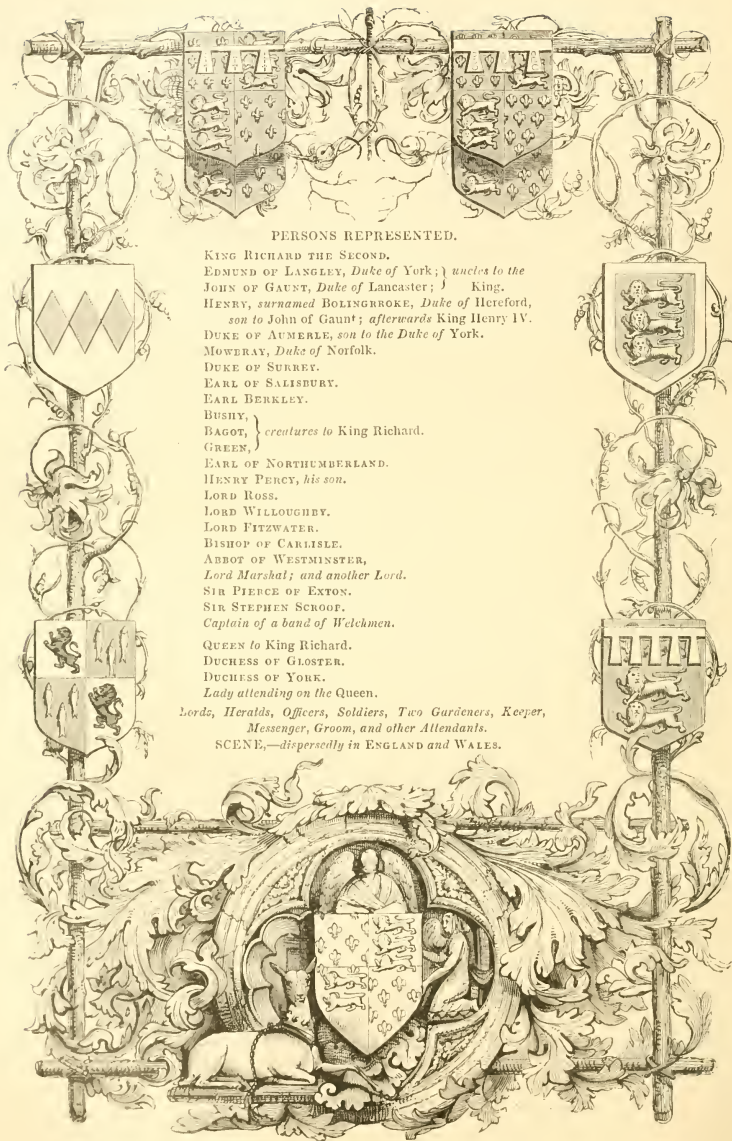 PERSONS REPRESENTED.
KING RICHARD THE SECOND.
EDMUND OF LANGLEY, Duke of York; } uncles to the
JOHN OF GAUNT, Duke of Lancaster; } King.
HENRY, surnamed BOLINGBROKE, Duke of Hereford,
son to John of Gaunt; afterwards King Henry IV.
DUKE OF AUMERLE, son to the Duke of York.
MOWBRAY, Duke of Norfolk.
DUKE OF SURREY.
EARL OF SALISBURY.
EARL BERKLEY.
BUSHY,
BAGOT, } creatures to King Richard.
GREEN,
EARL OF NORTHUMBERLAND.
HENRY PERCY, his son.
LORD ROSS.
LORD WILLOUGHBY.
LORD FITZWATER.
BISHOP OF CARLISLE.
ABBOT OF WESTMINSTER,
Lord Marshal; and another Lord.
SIR PIERCE OF EXTON.
SIR STEPHEN SCROOP.
Captain of a band of Welchmen.
QUEEN to King Richard.
DUCHESS OF GLOSTER.
DUCHESS OF YORK.
Lady attending on the Queen.
Lords, Heralds, Officers, Soldiers, Two Gardeners, Keeper,
Messenger, Groom, and other Attendants.
SCENE,—dispersedly in ENGLAND and WALES.